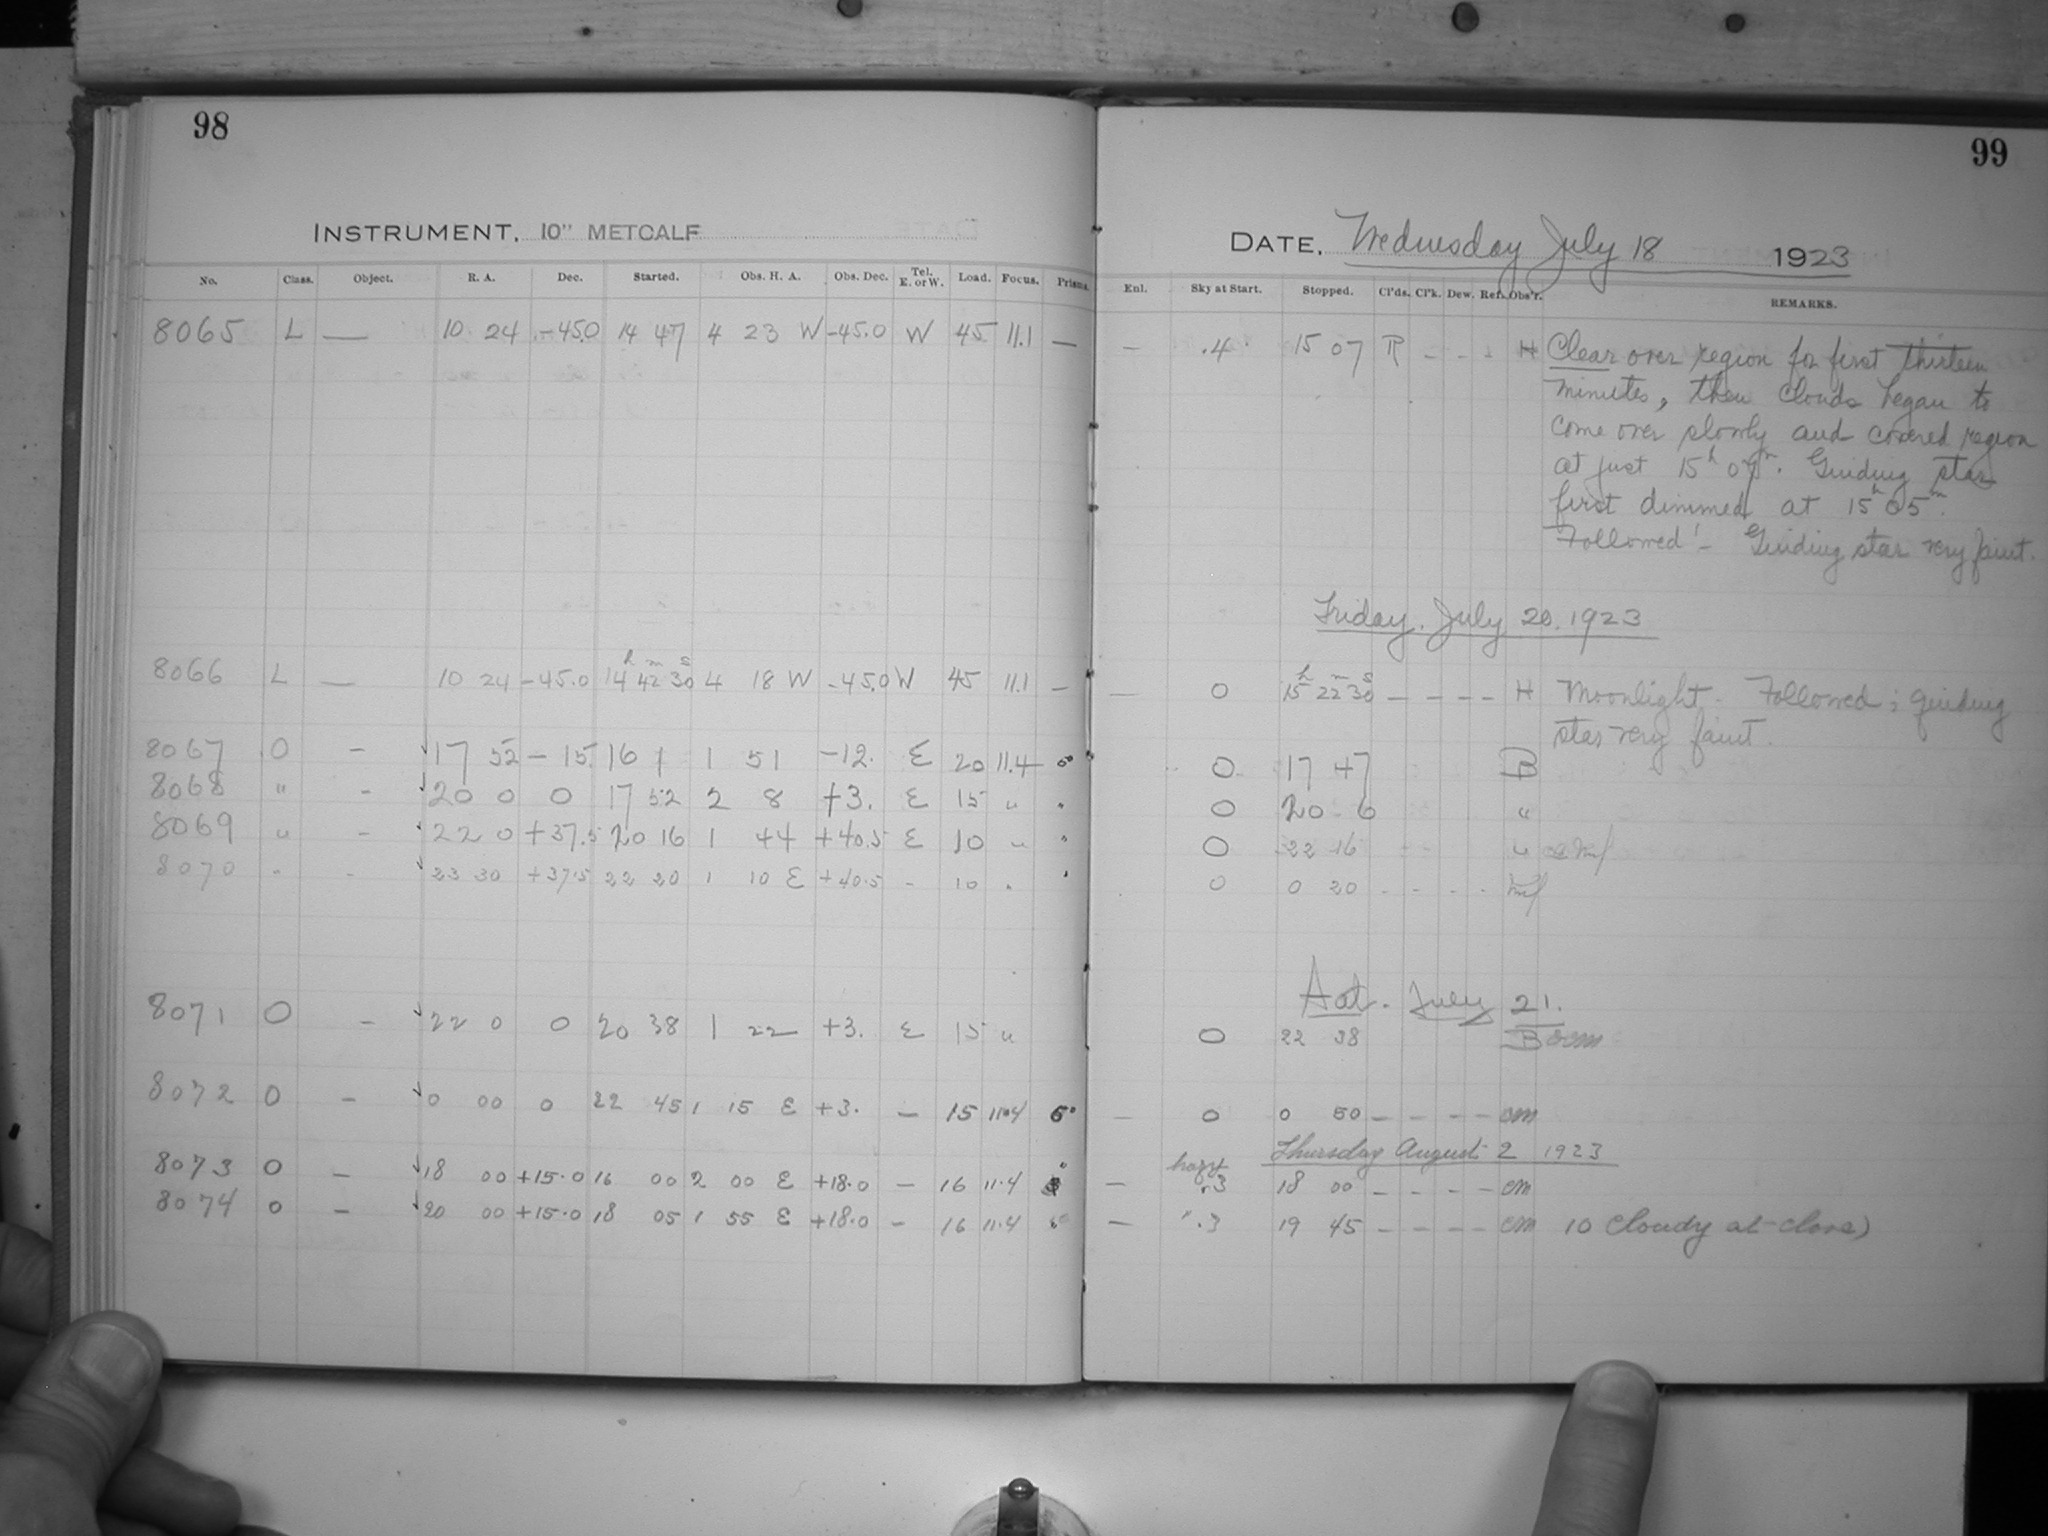 98
INSTRUMENT, 10" METCALF
No. Class. Object. R. A. Dec. Started. Obs. H. A. Obs. Dec. Tel. E. or W. Load. Focus. Prisms.
8065 L — 10 24 -45.0 14 47 4 23 W -45.0 W 45 11.1 —
8066 L — 10 24 -45.0 14h 42m 30s 4 18 W -45.0 W 45 11.1 —
8067 O – 17 52 - 15. 16 1 1 51 -12. E 20 11.4 5°
8068 " – 20 0 0 17 52 2 8 +3. E 15 " "
8069 " – 22 0 +37.5 20 16 1 44 +40.5 E 10 " "
8070 - - 23 30 +37.5 22 20 1 10 E +40.5 - 10 " "
8071 O – 22 0 0 20 38 1 22 +3. E 15 "
8072 O – 0 00 0 22 45 1 15 E +3. — 15 11.4 5°
8073 O – 18 00 +15.0 16 00 2 00 E +18.0 – 16 11.4 "
8074 O – 20 00 +15.0 18 05 1 55 E +18.0 – 16 11.4 "
99
DATE, Wednesday July 18 1923
Enl. Sky at Start. Stopped. Cl'ds. Cl'k. Dew. Ref. Obs'r. REMARKS.
— .4 15 07 R - - - H Clear over region for first thirteen
minutes, then clouds began to
come over slowly and covered region
at just 15h 07m. Guiding star
first dimmed at 15h 05m.
Followed - Guiding star very faint.
Friday. July 20. 1923
— 0 15h 22m 30s – – – – H Moonlight. Followed; guiding
star very faint.
0 17 47 B
0 20 6 "
0 22 16 "
0 0 20 - - - -
Sat. July 21.
0 22 38 B
— 0 0 50 – – – – cm
Thursday August 2 1923
hazy
— .3 18 00 – – – – cm
— " .3 19 45 – – – – cm 10 Cloudy at close)